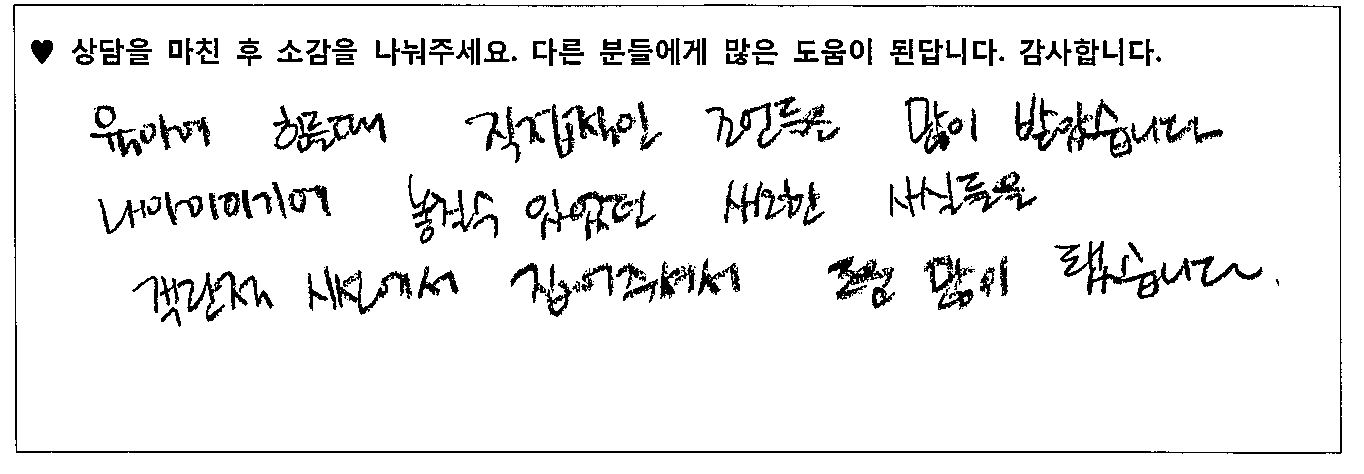 ♥ 상담을 마친 후 소감을 나눠주세요. 다른 분들에게 많은 도움이 된답니다. 감사합니다.
육아에 힘들때 직접적인 조언들을 많이 받았습니다
놓칠수 있었던 세세한 사실들을
시선에서 집어주셔서 도움 많이 됐습니다.